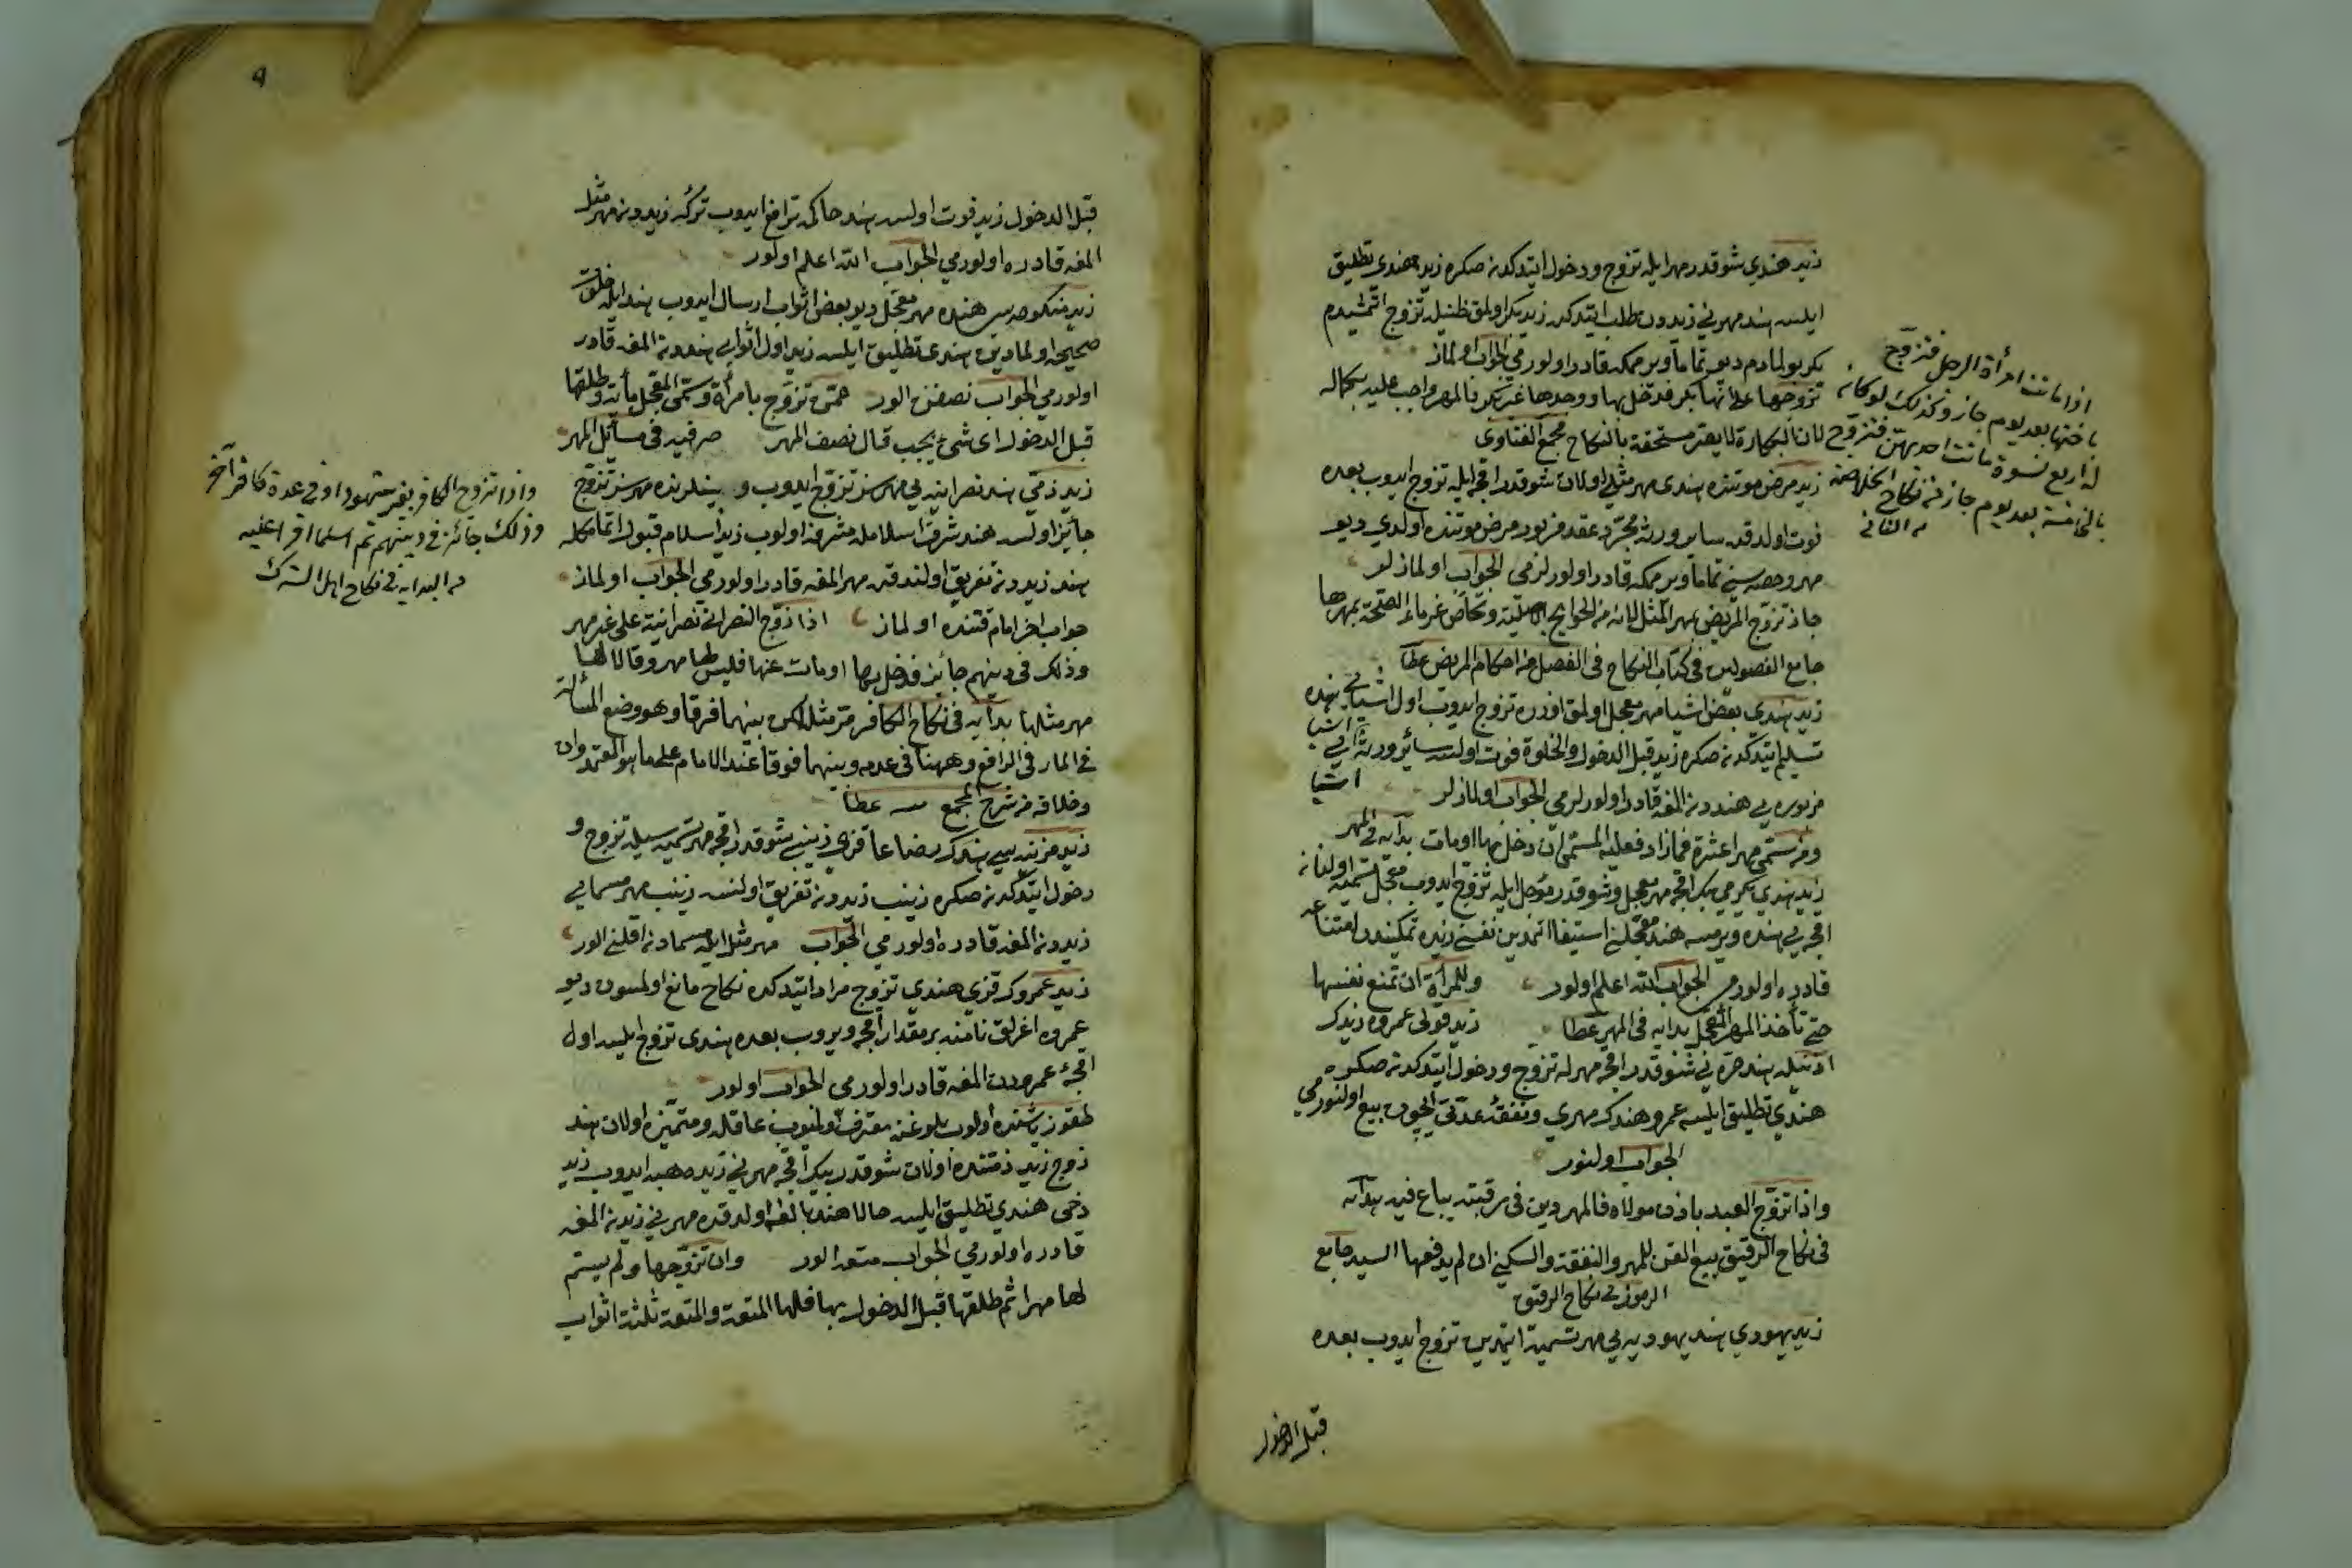 زيد هندي شو قدر مهر ايله تزوج ودخول ايتدكدنصكره زيد هندي تطليق
ايلسه هند مهرني زيددن طلب ايتدكده زيد بكر اولمق ظنيله تزوج اتمشيدم
بكر بولمادم ديو تماما ويرمكه قادر اولورمي الجواب اولماز
تزوجها على انها بكر فدخل بها ووجدها غير بكر فالمهر واجب عليه بكماله
لان البكارة لا يصير مستحقة بالنكاح مجمع الفتاوى
زيد مرض موتنده هندي مهر مثلي اولان شو قدر اقچه ايله تزوج ايدوب بعده
فوت اولدقده سائر ورثه مجرد عقد مزبور مرض موتنده اولدي ديو
مهر وحصه سني تماما ويرمكه قادر اولورلرمي الجواب اولمازلر
جاز تزوج المريض بمهر المثل لانه من الحوايج الاصلية وتحاص غرماء الصحة بمهرها
جامع الفصولين في كتاب النكاح في الفصل من احكام المريض عطا
زيد هندي بعض اشيا مهر معجل اولمق اوزره تزوج ايدوب اول اشيايي هنده
تسليم ايتدكدنصكره زيد قبل الدخول والخلوة فوت اولسه سائر ورثه اشياي
مزبوره يي هنددن المغه قادر اولورلرمي الجواب اولمازلر
اشيا
ومن سمى مهرا عشرة فما زاد فعليه المسمى ان دخل بها او مات بدايه في المهر
زيد هندي يكرمي بيك اقچه مهر معجل وشو قدر مؤجل ايله تزوج ايدوب معجل تسميه اولنان
اقچه يي هنده ويرمسه هند معجلني استيفا اتمدين نفسني زيده تمكيندن امتناعه
قادره اولورمي الجواب الله اعلم اولور وللمرأة ان تمنع نفسها
حتى تأخذ المهر المعجل بدايه في المهر عطا زيد قولى عمروه زيدك
اذنيله هند حره يي شو قدر اقچه مهرله تزوج ودخول ايتدكدنصكره
هندي تطليق ايلسه عمرو هندك مهري ونفقه عدتي ايچون بيع اولنورمي
الجواب اولنور
واذا تزوج العبد باذن مولاه فالمهر دين في رقبته يباع فيه بدايه
في نكاح الرقيق بيع القن للمهر والنفقة والسكنى ان لم يدفعها السيد جامع
الرموز في نكاح الرقيق
زيد يهودي هند يهوديه يي مهر تسمية ايتمدين تزوج ايدوب بعده
قبل الدخول
اذا ماتت امرأة الرجل فتزوج
باختها بعد يوم جاز وكذلك لو كان
له اربع نسوة ماتت احديهن فتزوج
بالخامسة بعد يوم جاز من نكاح الخلاصه
من الثاني
٩
قبل الدخول زيد فوت اولسه هند حاكمه ترافع ايدوب تركۀ زيددن مهر مثل
المغه قادره اولورمي الجواب الله اعلم اولور
زيد منكوحه سي هنده مهر معجل ديو بعض اثواب ارسال ايدوب هند ايله خلوت
صحيحه اولمادين هندي تطليق ايلسه زيد اول اثوابي هنددن المغه قادر
اولورمي الجواب نصفن الور تزوج بامرأة وسمى المعجل مأية وطلقها
قبل الدخول اي شئ يجب قال نصف المهر صرفيه في مسائل المهر
زيد ذمي هند نصرانيه يي مهرسز تزوج ايدوب و بينلرنده مهرسز تزوج
جائز اولسه هند شرف اسلامله مشرفه اولوب زيد اسلام قبول اتمامكله
هند زيددن تفريق اولندقده مهر المغه قادر اولورمي الجواب اولماز
جواب اخر امام قتنده اولماز اذا تزوج النصراني نصرانية على غير مهر
وذلك في دينهم جائز فدخل بها او مات عنها فليس لها مهر وقالا لها
مهر مثلها بدايه في نكاح الكافر مر مثله لكن بينهما فرقا وهو وضع المسألة
في المار في الرافع وههنا في عدمه وبينهما فرقا عند الامام على ما هو المعتمد وان
وخلافه من شرح المجمع عطا
زيد مزنيه سي هندك رضاعا قزي زينبي شو قدر اقچه مهر تسميه سيله تزوج و
دخول ايتدكدنصكره زينب زيددن تفريق اولنسه زينب مهر مسمايي
زيددن المغه قادره اولورمي الجواب مهر مثل ايله مسمادن اقلني الور
زيد عمروك قزي هندي تزوج مراد ايتدكده نكاح مانع اولمسون ديو
عمروه اغرلق نامنه بر مقدار اقچه ويروب بعده هندي تزوج ايلسه اول
اقچۀ عمرودن المغه قادر اولورمي الجواب اولور
طقوز ياشنده اولوب بلوغنه معترفه اولميوب عاقله ومتميزه اولان هند
زوج زيد ذمتنده اولان شو قدر بيك اقچه مهرني زيده هبه ايدوب زيد
دخي هندي تطليق ايلسه حالا هند بالغه اولدقده مهرني زيددن المغه
قادره اولورمي الجواب متعه الور وان تزوجها ولم يسم
لها مهرا ثم طلقها قبل الدخول بها فلها المتعة والمتعة ثلثة اثواب
واذا تزوج الكافر بغير شهود او في عدة كافر آخر
وذلك جائز في دينهم ثم اسلما اقرا عليه
من البدايه في نكاح اهل الشرك